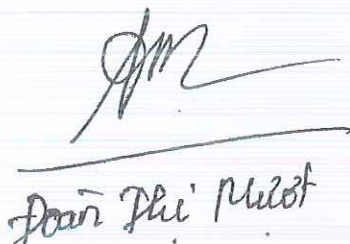 Đoàn Thị Mượt